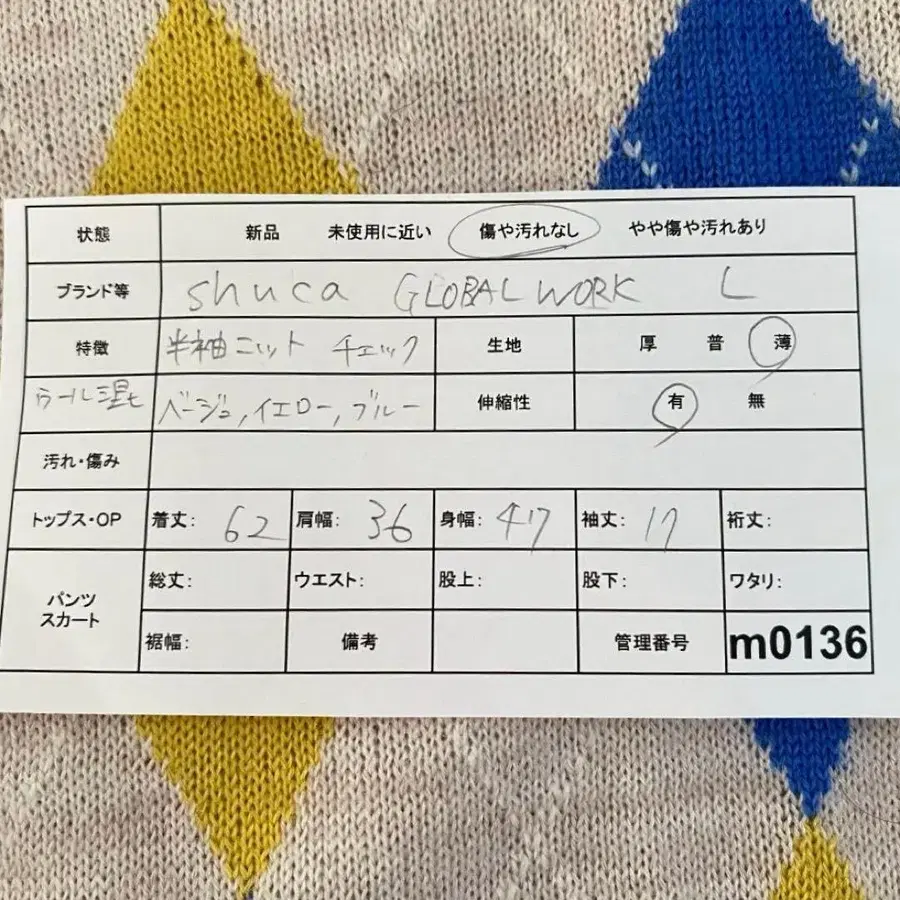 状態 新品 未使用に近い 傷や汚れなし やや傷や汚れあり
ブランド等 shuca GLOBAL WORK L
特徴 半袖ニット チェック 生地 厚 普 薄
ウール混 ベージュ,イエロー,ブルー 伸縮性 有 無
汚れ・傷み
トップス・OP 着丈: 62 肩幅: 36 身幅: 47 袖丈: 17 裄丈:
パンツ スカート 総丈: ウエスト: 股上: 股下: ワタリ:
裾幅: 備考 管理番号 m0136